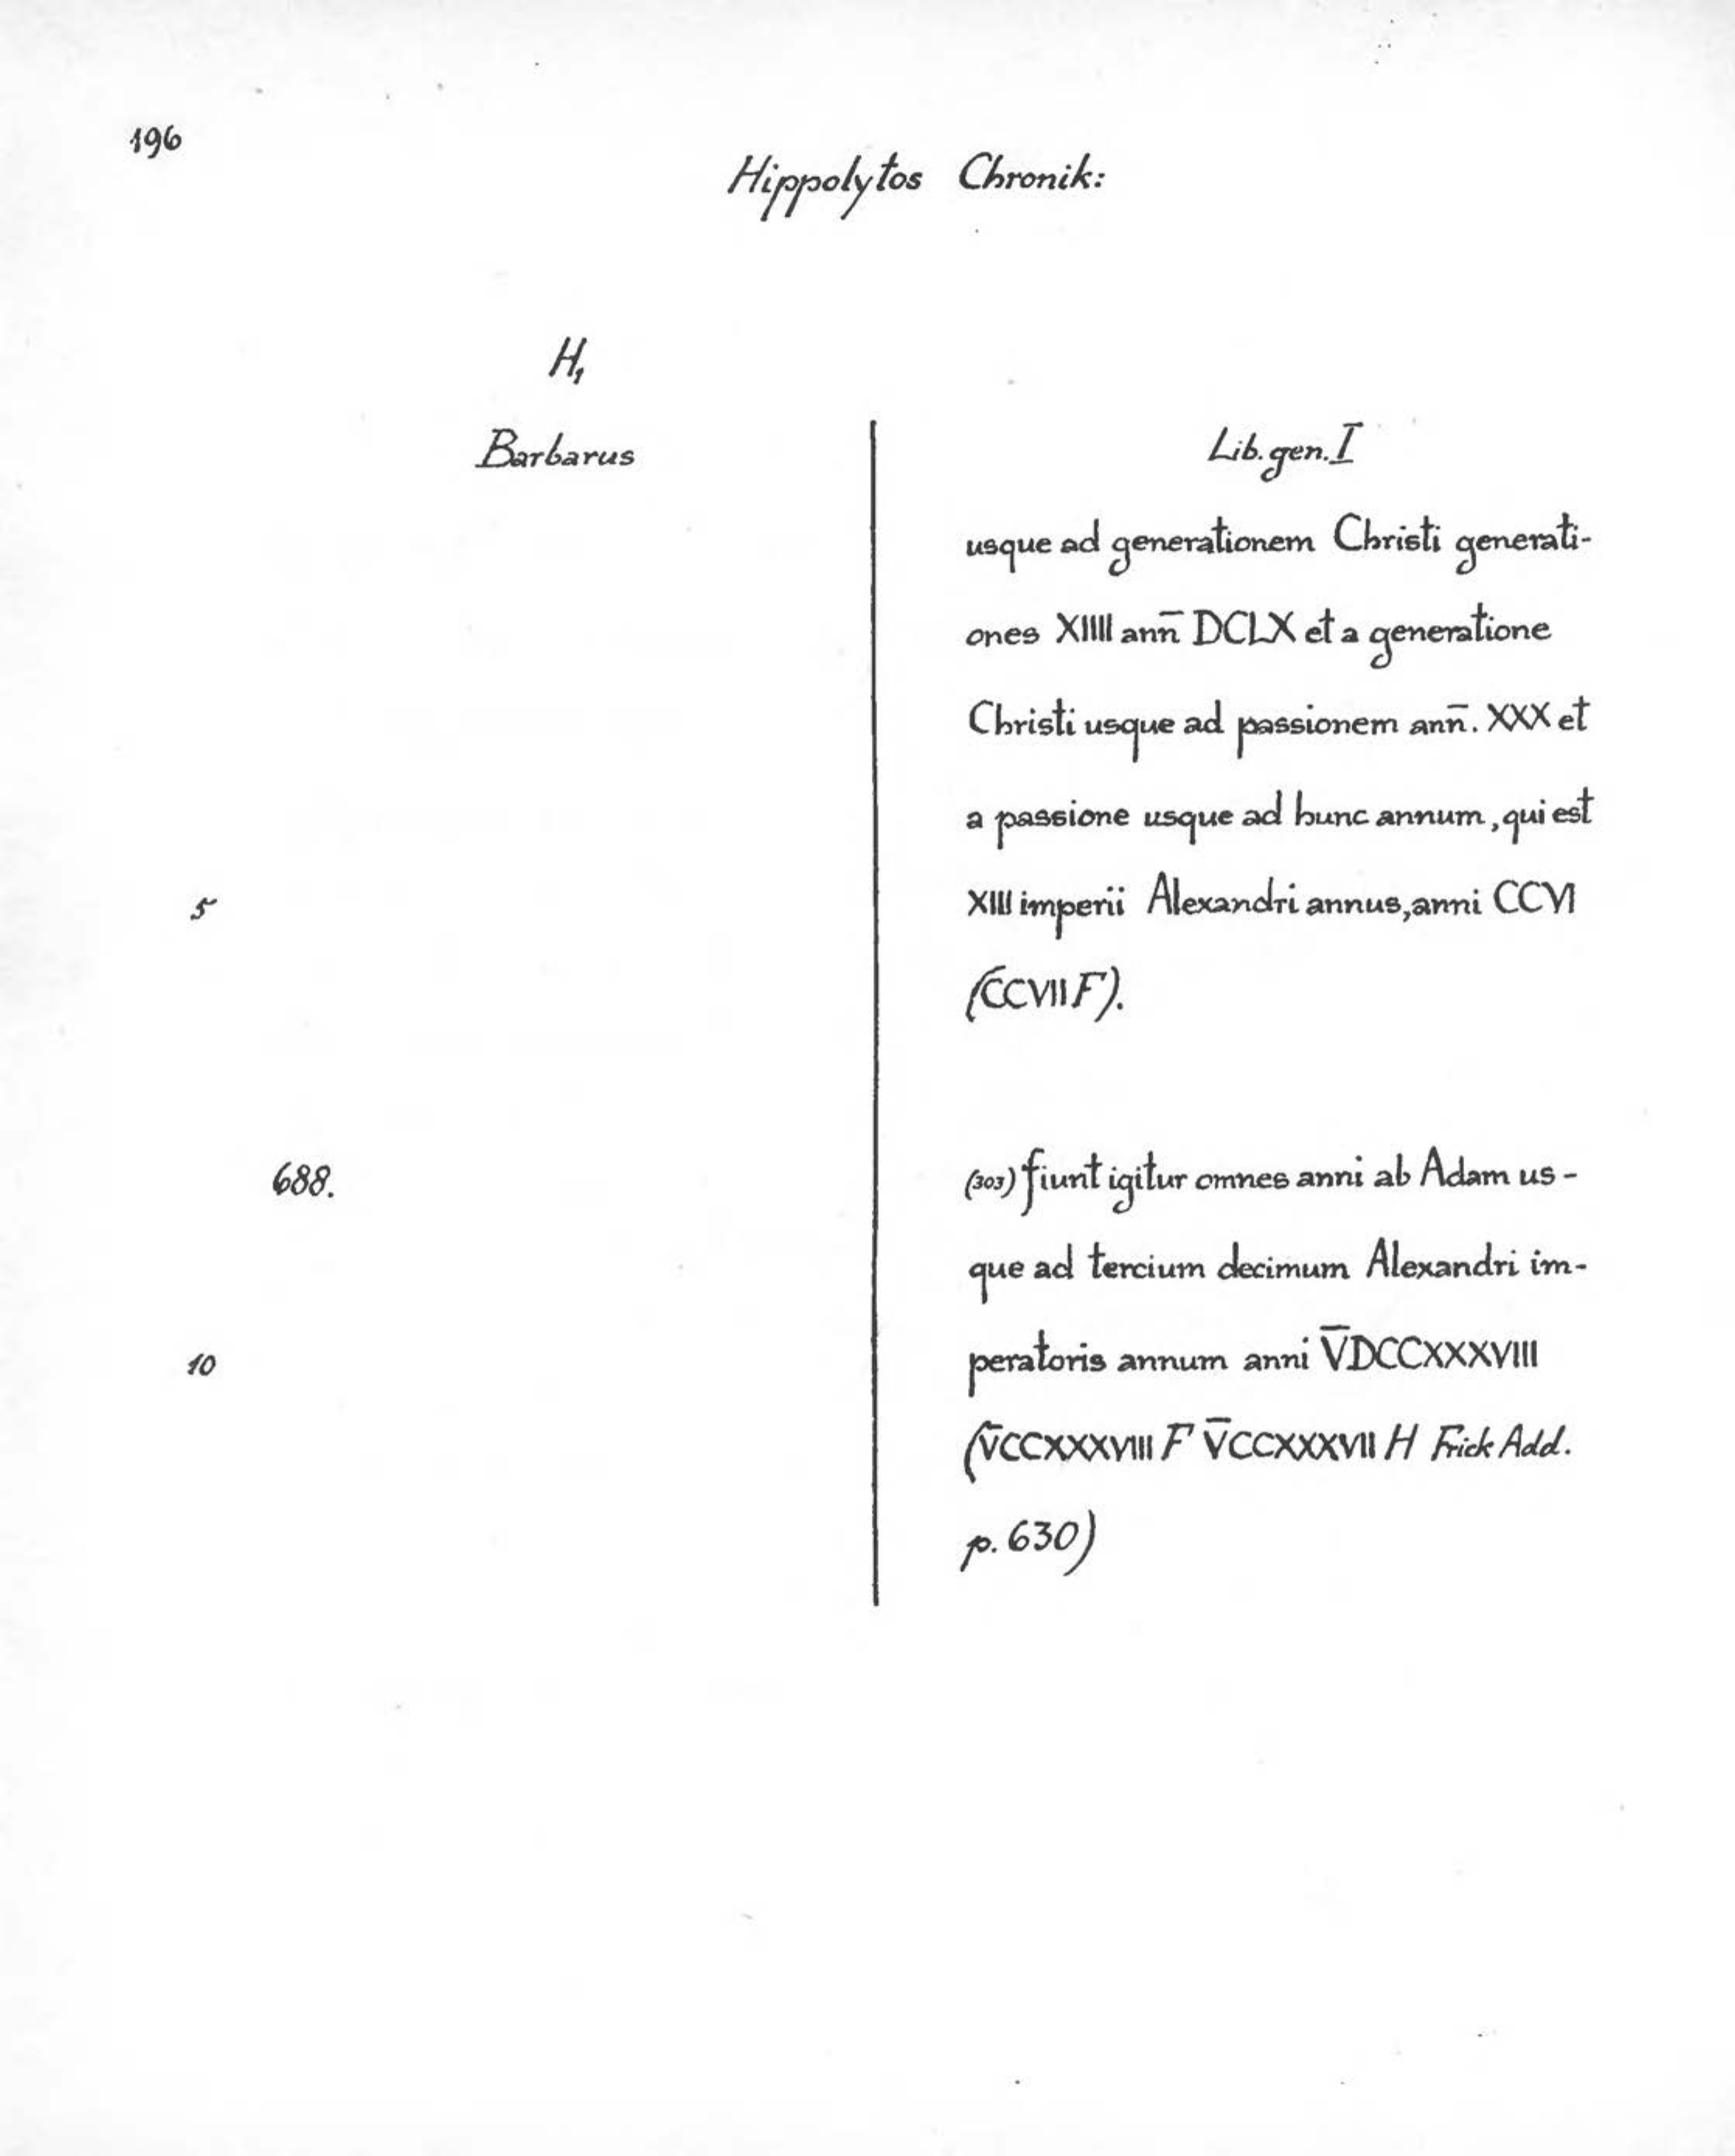 196
Hippolytos Chronik:
H₁
Barbarus
Lib. gen. I
usque ad generationem Christi generati-
ones XIIII ann̄ DCLX et a generatione
Christi usque ad passionem ann̄. XXX et
a passione usque ad hunc annum, qui est
5 XIII imperii Alexandri annus, anni CCVI
(CCVII F).
688. (303) fiunt igitur omnes anni ab Adam us-
que ad tercium decimum Alexandri im-
10 peratoris annum anni V̄DCCXXXVIII
(V̄CCXXXVIII F V̄CCXXXVII H Frick Add.
p. 630)